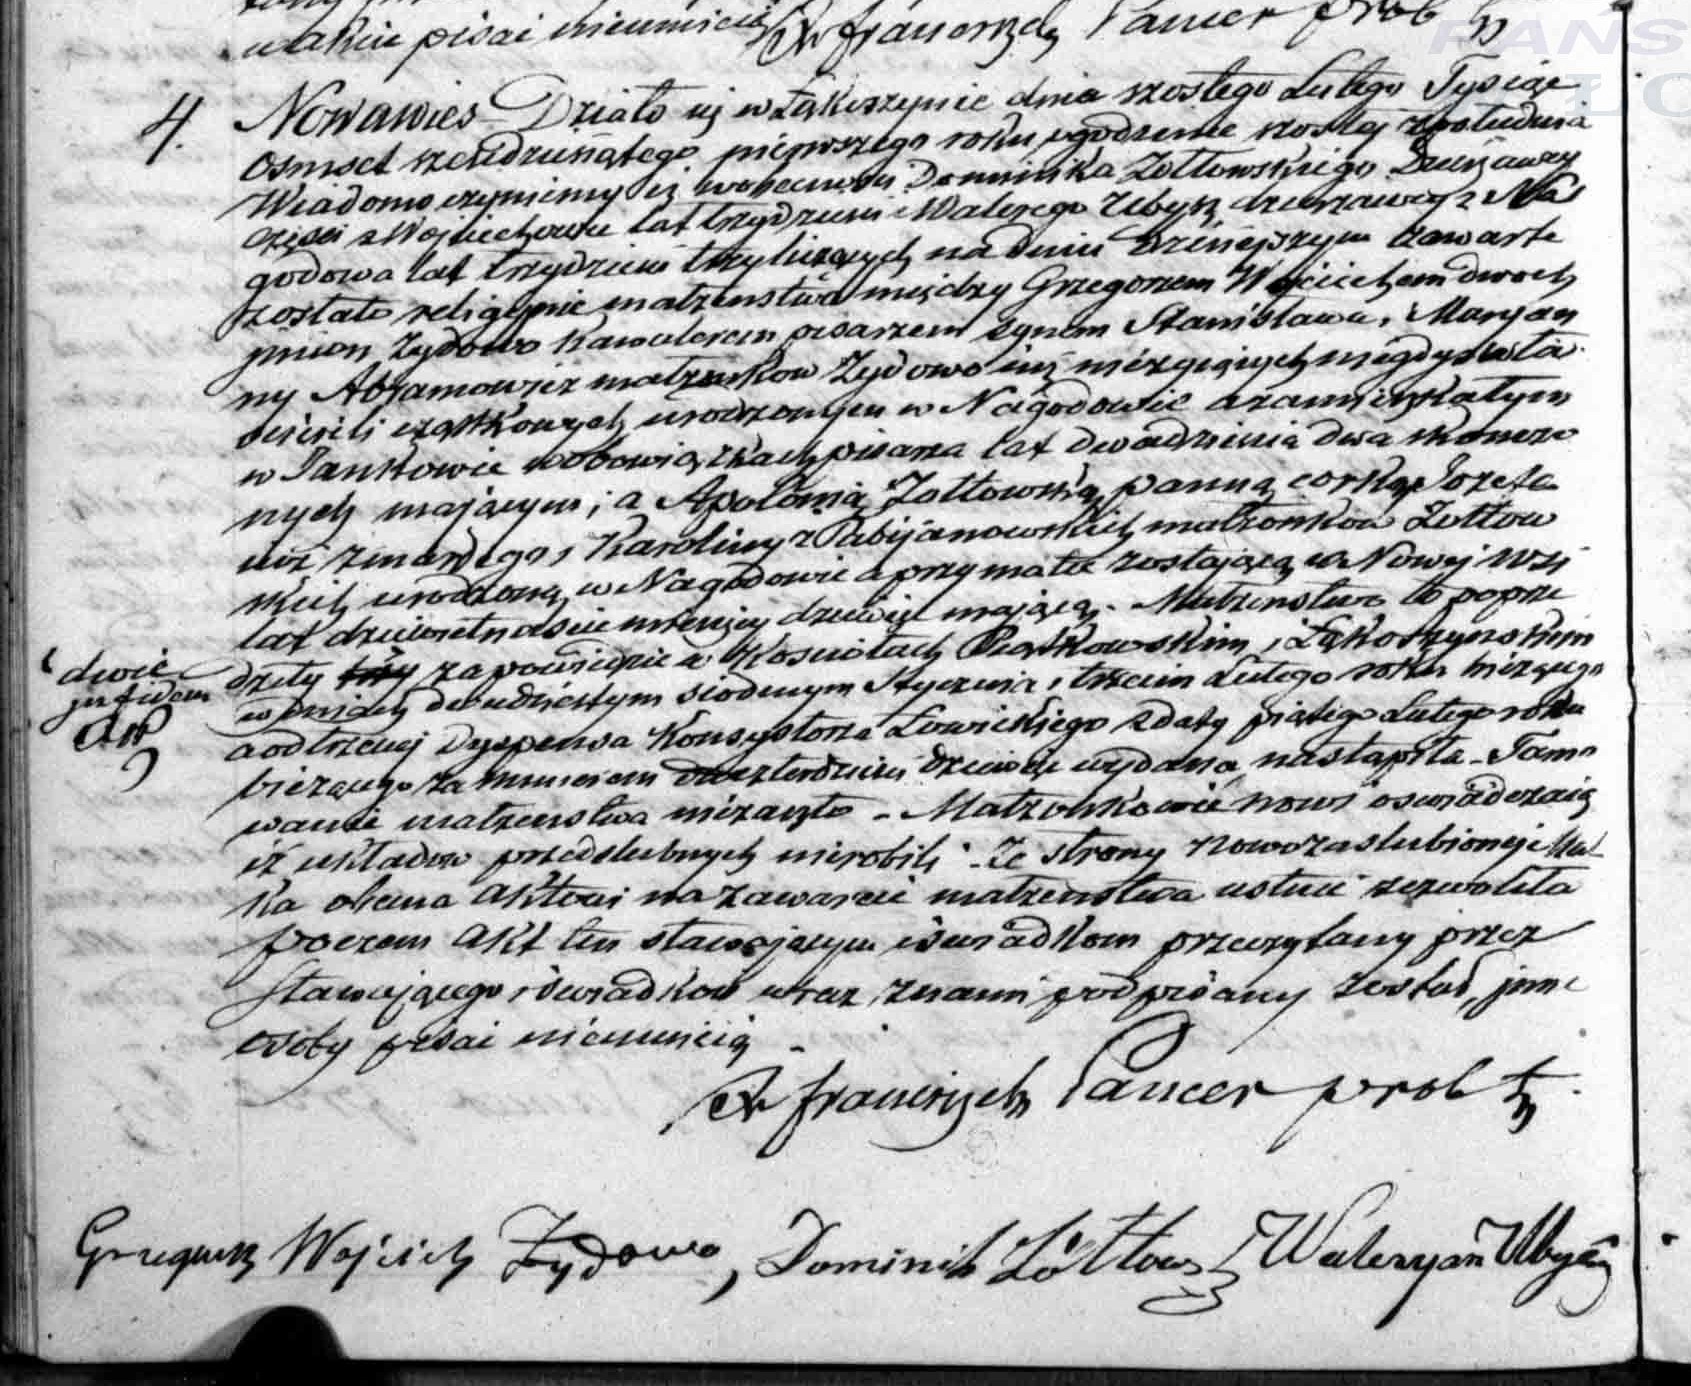 umknie pisać nieumieją Xr franciszek Pancer prob
4. Nowawies Działo się w Łąkoszynie dnia szostego Lutego Tysiąc
Osmset szescdziesiątego pierwszego roku, o godzinie szostej z południa
Wiadomo czyniemy iż w obecnosci Dominika Zołtowskiego Dzierżawcy
częsci z Wojciechowa lat trzydziesci i Walerego Zbysz dzierzawcy z Na
godowa lat trzydziesci trzy liczących, na dniu dzisiejszym zawarte
zostało religijnie małzenstwo między Grzegorzem Wojciechem dwoch
jmion Zydowo Kawalerem pisarzem synem Stanisława, i Maryan
ny Abramowicz małzonkow Zydowo już nieżyjących niegdys wła
scicieli cząstkowych urodzonym w Nagodowie a zamieszkałym
w Jankowie w obowiązkach pisarza lat dwadziescia dwa skonczo
nych mającym; a Apolonią Zołtowską, panną corką Jozefa
już zmarłego, i Karoliny z Pabijanowskich małzonkow Zołtow
skich urodzoną w Nagodowie a przy matce zostającą w Nowej Wsi
lat dziewietnascie miesięcy dziewięc mającą. Małzenstwo to poprze
dziły trzy zapowiedzie w Kosciołach Piątkowskim i Łąkoszynskim
dwie
w dniach dwudziestym siodmym Stycznia i trzecim Lutego roku bieżącego
a od trzeciej Dyspensa Konsystorza Łowickiego z daty piątego Lutego roku
bieżącego za numerem czterdziesci dziewięc wydana, nastąpiła. Tamo
wanie małzenstwa niezaszło. Małzonkowie nowi oswiadczają
iż układow przedslubnych nierobili. Ze strony nowozaslubionej Mat
ka obecna Aktowi na zawarcie małzenstwa ustnie zezwoliła
poczem Akt ten stawającym i swiadkom przeczytany przez
stawającego i swiadkow wraz z nami podpisany został, inne
osoby pisać nieumieją.
Xr franciszek Pancer prob
Grzegorz Wojciech Zydowo, Dominik Żółtows Waleryan